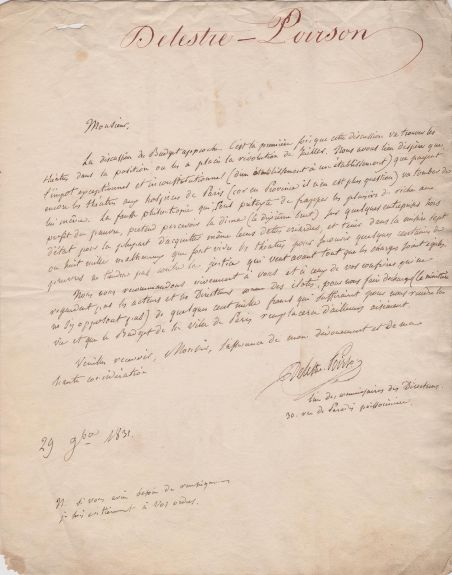 Delestre-Poirson
Monsieur,
La discussion du Budget approche. C'est la première fois que cette discussion va trouver les
théâtres dans la position où les a placé la révolution de Juillet. Nous avons lieu d'espérer que
l'impôt exceptionnel et inconstitutionnel (d'un établissement à un établissement) que payent
encore les théâtres aux hospices de Paris (car en Province il n'en est plus question) va tomber de
lui même. La fausse philantropie qui sous prétexte de frapper les plaisirs du riche au
profit du pauvre, prélève la dîme (la dixième brut) sur quelques entreprises hors
d'état pour la plupart d'acquitter même leurs dettes criardes, et
ou huit mille malheureux que font vivre les théâtres pour
pauvres ne tiendra pas contre la justice qui veut avant tout que les charges soient égales.
Nous nous recommandons vivement à vous et à ceux de vos confrères qui ne
regardent pas les acteurs et les Directeurs comme des ilotes, pour nous faire décharger (le ministère
ne s'y opposant pas) de quelques cent mille francs qui suffiraient pour nous rendre la
vie et que le Budget de la Ville de Paris remplacera d'ailleurs aisément.
Veuillez recevoir, Monsieur, l'assurance de mon dévouement et de ma
haute considération
Delestre Poirson
l'un des commissaires des Directeurs
30. rue de Paradis poissonnière.
29 9bre 1831.
N. Si vous avez besoin de renseignemens
je suis entièrement à vos ordres.